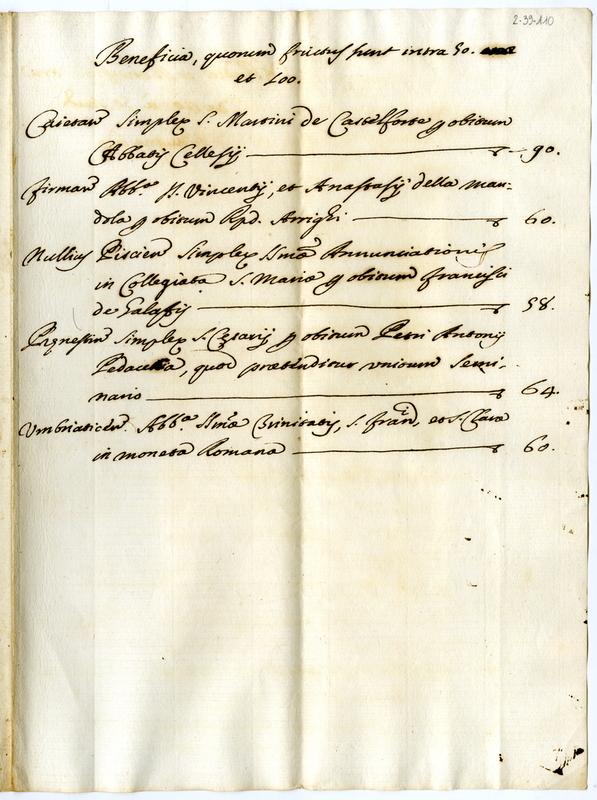 2-39-110
Beneficia, quorum fructus sunt intra 50.
et 100.
Caietan simplex S. Martini de Castelforte p obitum
Abbatis Cellesij 90.
Firman Abb.a SS. Vincentij, et Anastasij della man:
dola p obitum Rpd. Arrighi 60.
Nullius Piscien simplex SSmæ Annunciationis
in Collegiata S. Mariæ p obitum Francisci
de Galassij 58.
simplex S. Cesarij p obitum Petri Antonij
quod prætenditur unitum Semi,
nario 64.
Umbriaticen. Abb.a SSmæ Trinitatis, S. Franci, et S. Claræ
in moneta Romana 60.